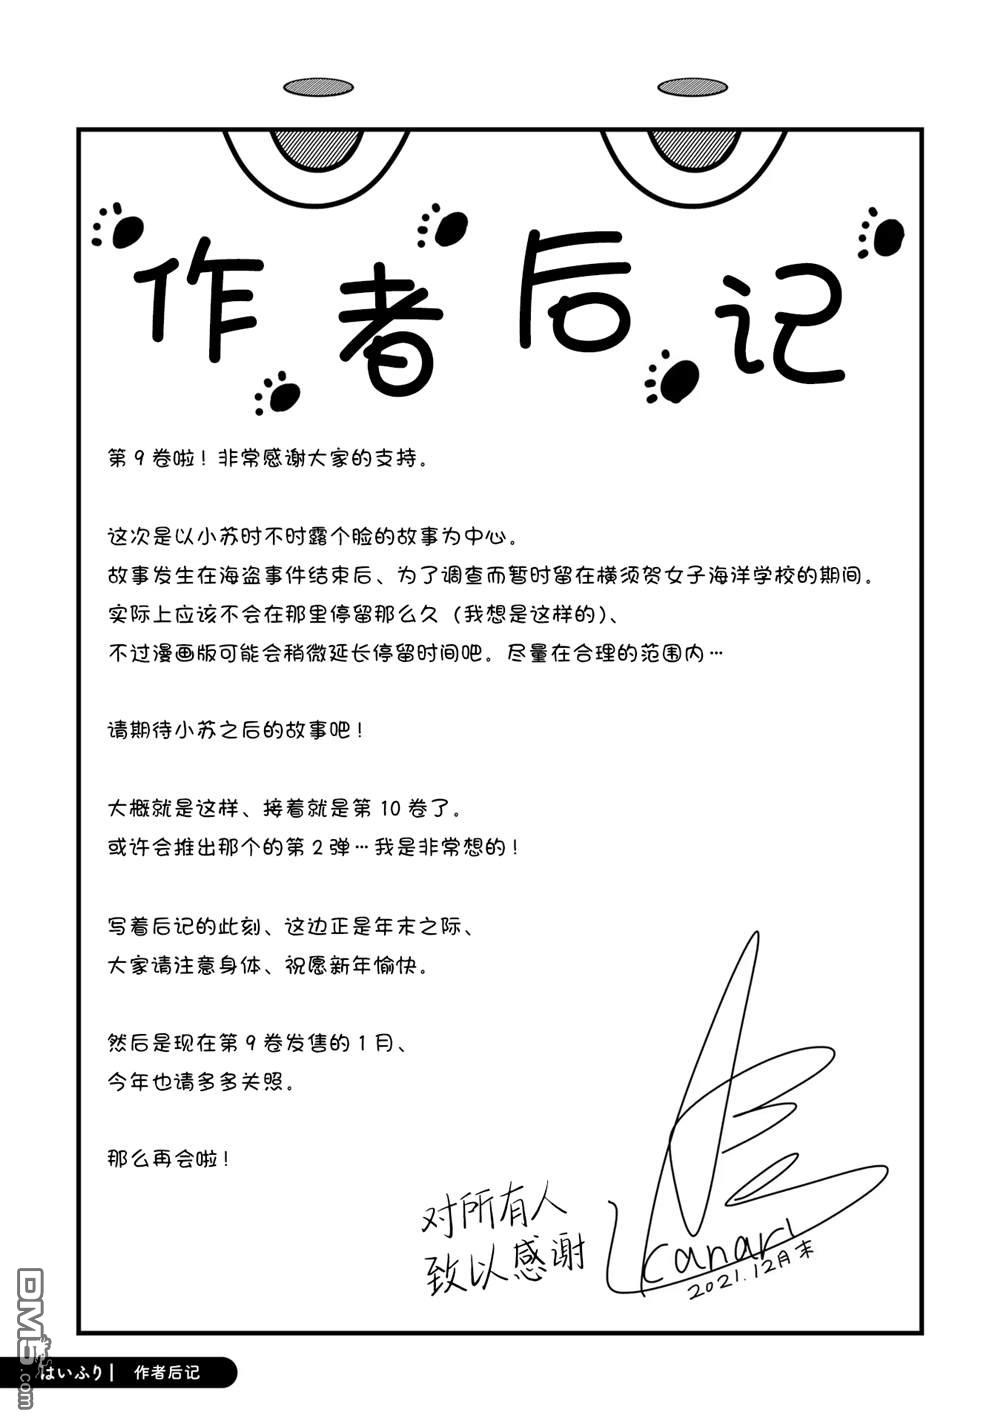 作者后记
第9卷啦！非常感谢大家的支持。
这次是以小苏时不时露个脸的故事为中心。
故事发生在海盗事件结束后、为了调查而暂时留在横须贺女子海洋学校的期间。
实际上应该不会在那里停留那么久（我想是这样的）、
不过漫画版可能会稍微延长停留时间吧。尽量在合理的范围内…
请期待小苏之后的故事吧！
大概就是这样、接着就是第10卷了。
或许会推出那个的第2弹…我是非常想的！
写着后记的此刻、这边正是年末之际、
大家请注意身体、祝愿新年愉快。
然后是现在第9卷发售的1月、
今年也请多多关照。
那么再会啦！
对所有人
致以感谢
kanari
2021.12月末
はいふり | 作者后记
DM5.com